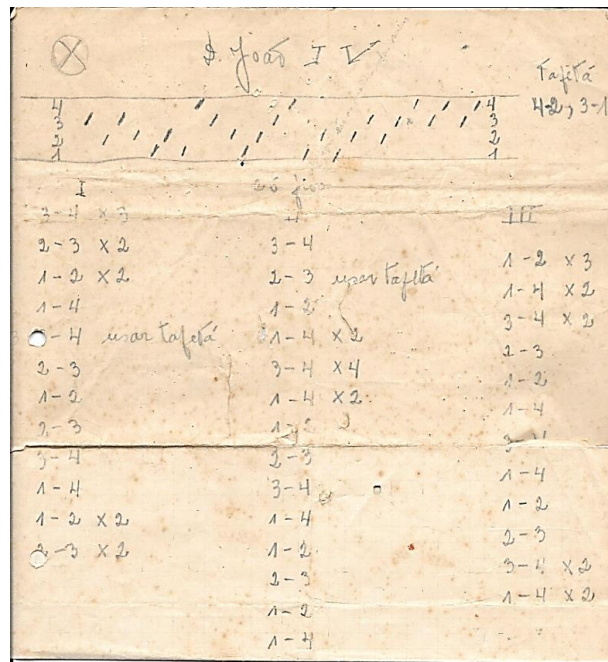 D. João IV
Tafetá
4-2, 3-1
4 4
3 3
2 2
1 1
I
3-4 x 3
2-3 x 2
1-2 x 2
1-4
3-4 usar tafetá
2-3
1-2
2-3
3-4
1-4
1-2 x 2
2-3 x 2
II
3-4
2-3 usar tafetá
1-2
1-4 x 2
3-4 x 4
1-4 x 2
1-2
2-3
3-4
1-4
1-2
2-3
1-2
1-4
III
1-2 x 3
1-4 x 2
3-4 x 2
2-3
1-2
1-4
3-4
1-4
1-2
2-3
3-4 x 2
1-4 x 2